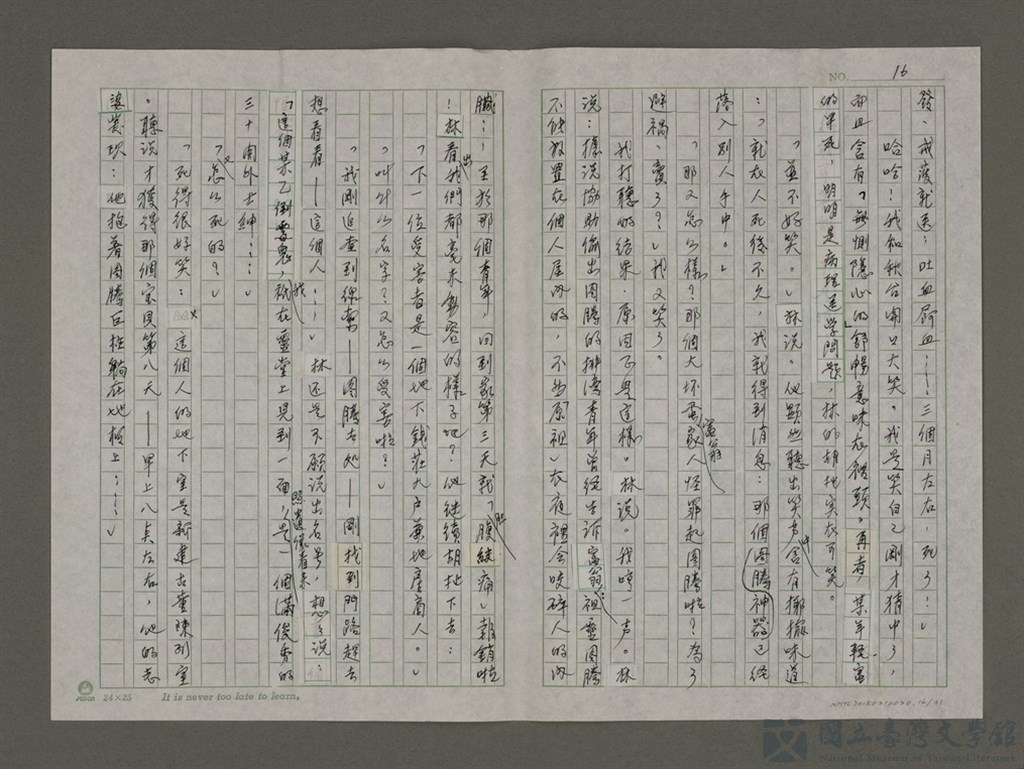 NO. 16
發、戒護就逃；吐血屙血……三個月左右，死了！」
哈哈！我和秋谷開口大笑。我是笑自己剛才猜中了，
而且含有「無惻隱心的」舒暢意味在裡頭。再者，某年輕富
的暴死，明明是病理醫學問題，林的胡扯實在可笑。
「並不好笑。」林說。他顯然聽出笑聲中含有揶揄味道
：「就在人死後不久，我就得到消息：那個圖騰神器已經
落入別人手中。」
「那又怎么樣？那個大坏蛋富翁家人怪罪起圖騰啦？為了
避禍，賣了？」我又笑了。
我打聽的結果，原因不是這樣。林說。我哼一声。林
說：據說協助偷出圖騰的排灣青年曾經告訴富翁：祖靈圖騰
不能放置在個人屋內的，不然「原祖」在夜裡會咬碎人的內
臟；至於那個青年，回到家第三天就「腹絞痛」報銷啦
！林看出我們都毫未動容的樣子吧？他継續胡扯下去：
「下一位受害者是一個地下錢莊大戶兼地產商人。」
「叫什么名字？又怎么受害啦？」
「我剛追查到線索——圖騰去処——剛找到門路趕去
想看看——這個人……」林还是不願說出名号，想想說：
「這個某乙倒霉鬼，我就在靈堂上見到一面，照遺像看來是一個滿俊秀的
三十開外士紳……」
「又怎么死的？」
「死得很好笑：這個人的地下室是新建古董陳列室
。聽說才獲得那個宝貝第八天——早上八点左右，他的老
婆發現：他抱著圖騰巨柱躺在地板上……」
24×25 It is never too late to learn.
國立臺灣文學館
National Museum of Taiwan Literature